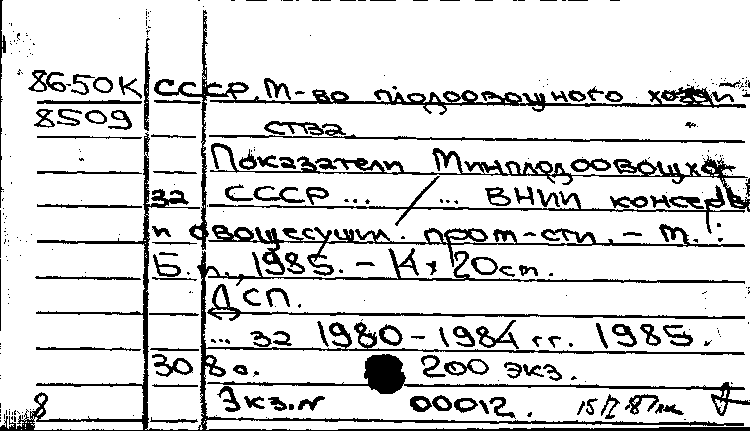 86-50К СССР. М-во плодоовощного хозяй
8509 ства.
Показатели Минплодоовощхо-
за СССР ... / ... ВНИИ консерв.
и овощесушил. пром-сти. - М.:
Б. и., 1985. - К; 20 см.
ДСП.
... за 1980-1984 гг. 1985.
308 с. 200 экз.
8 Экз.N 00012.